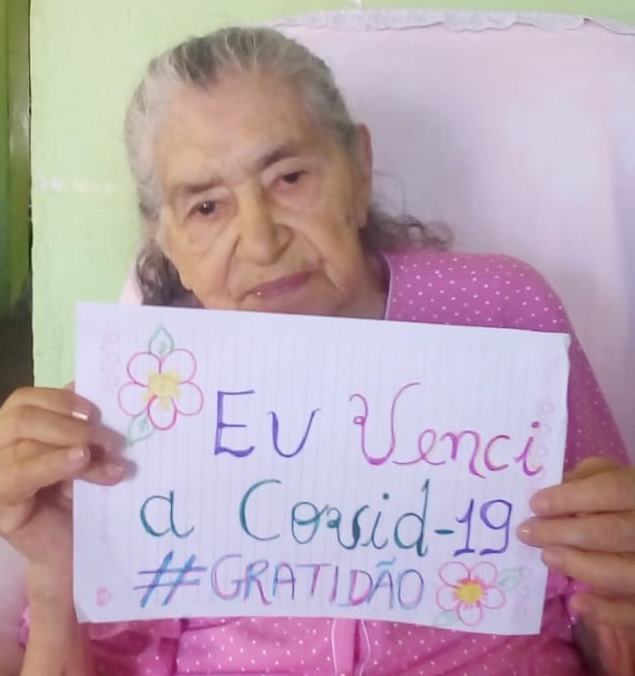 Eu Venci
a Covid-19
#GRATIDÃO